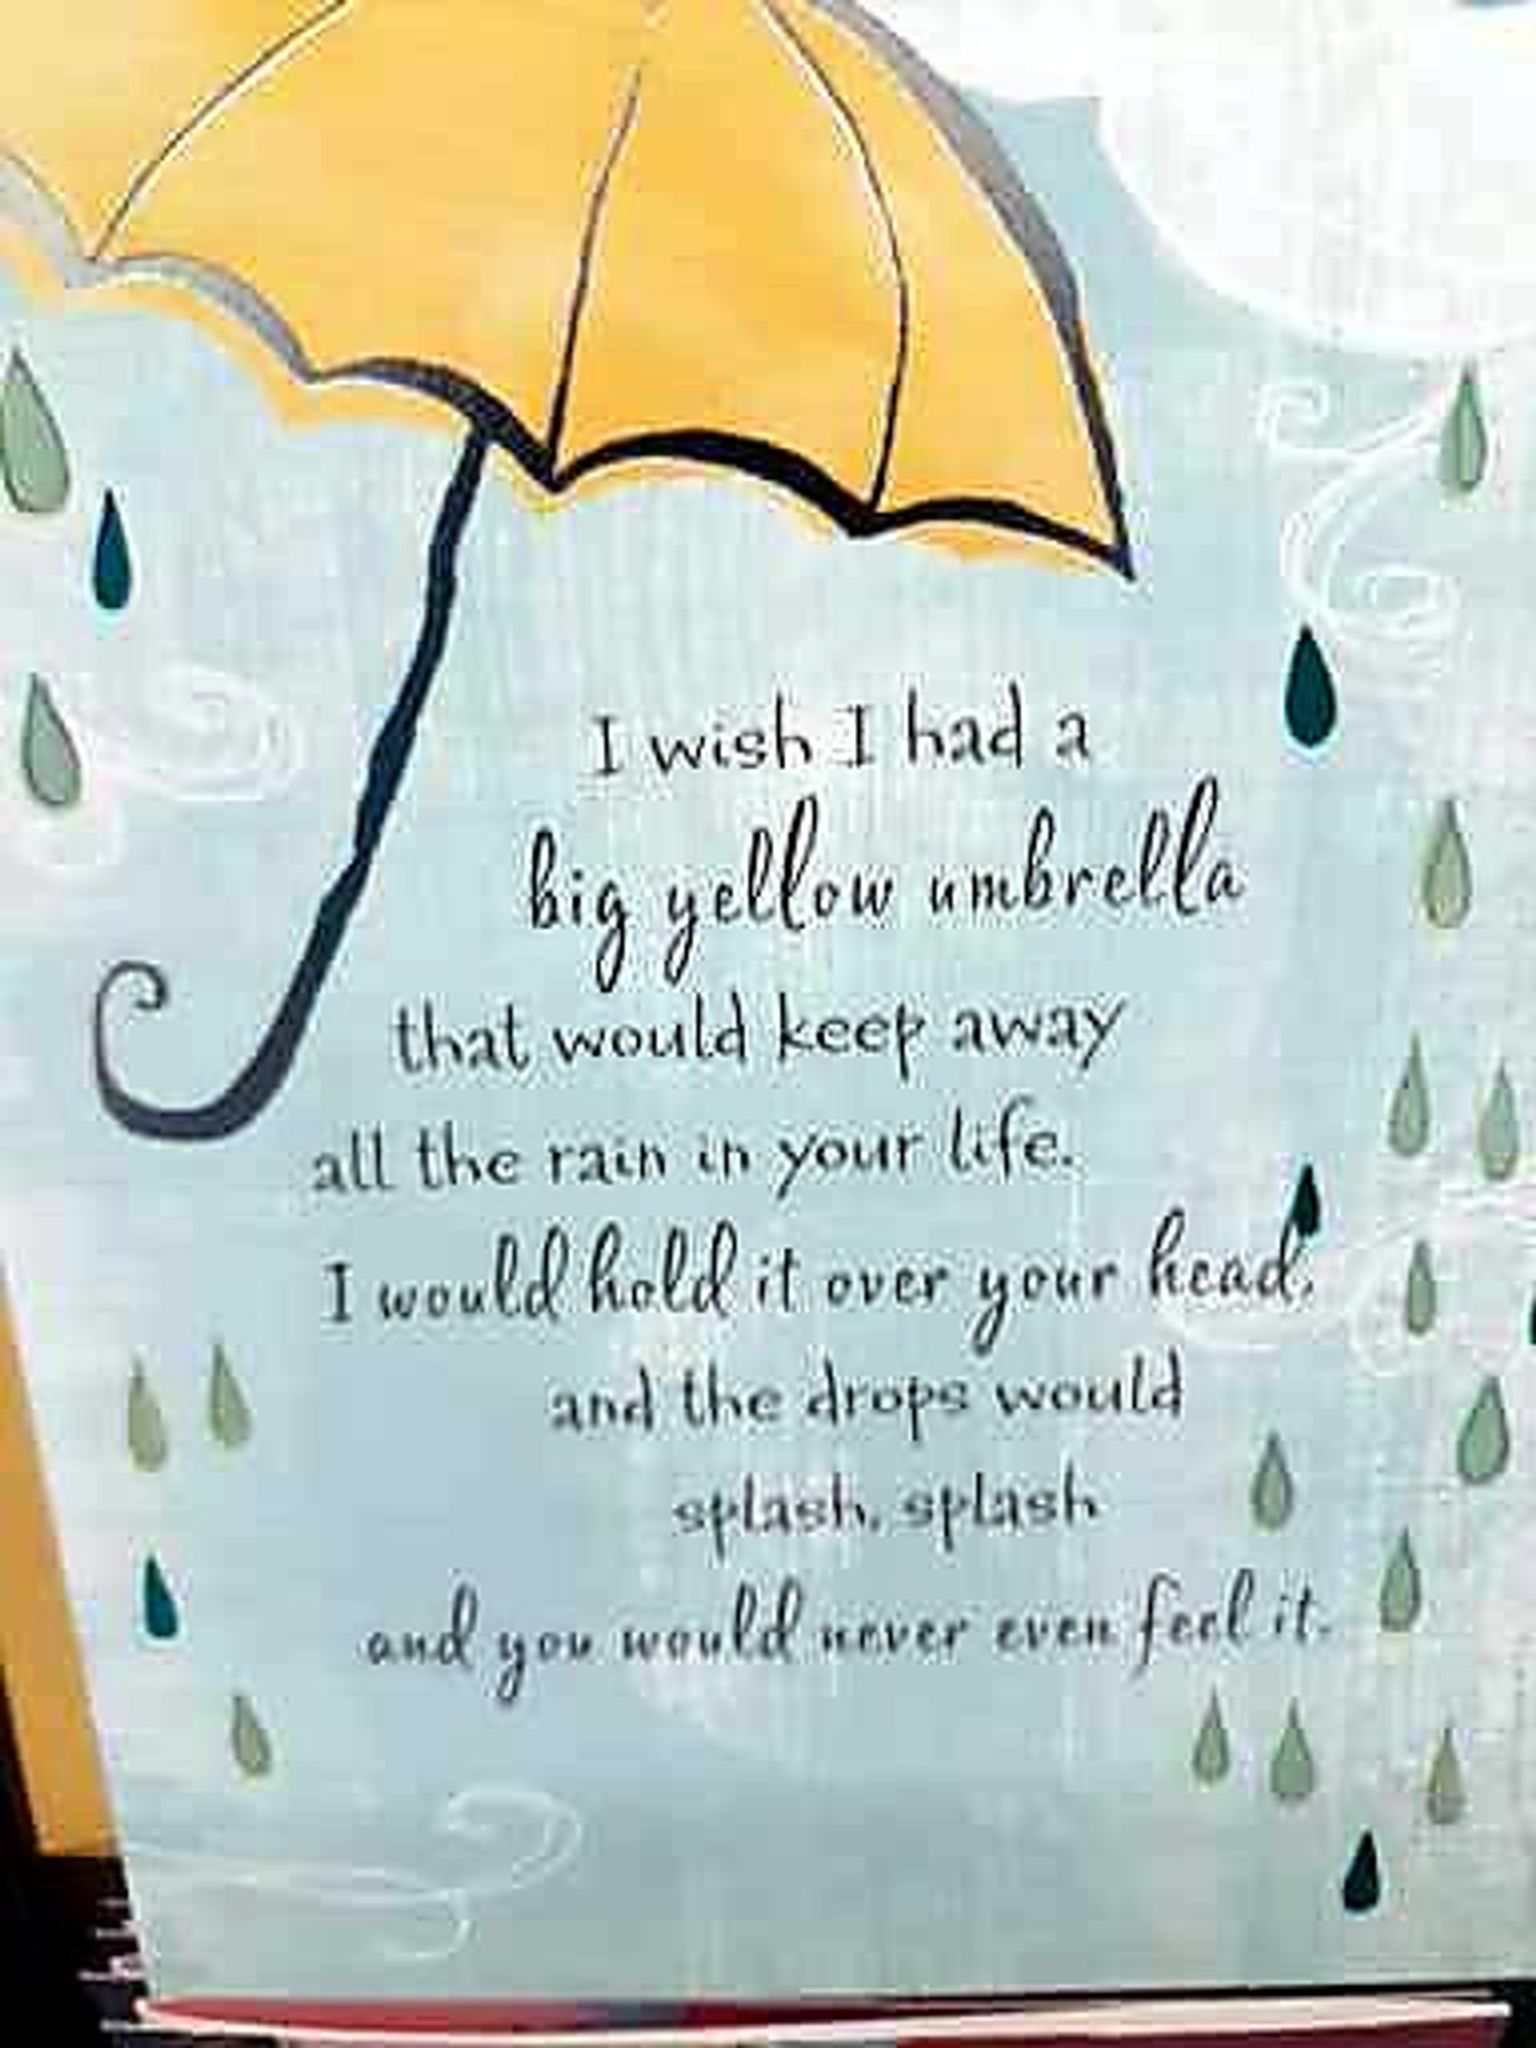 I wish I had a
big yellow umbrella
that would keep away
all the rain in your life.
I would hold it over your head,
and the drops would
splash, splash
and you would never even feel it.